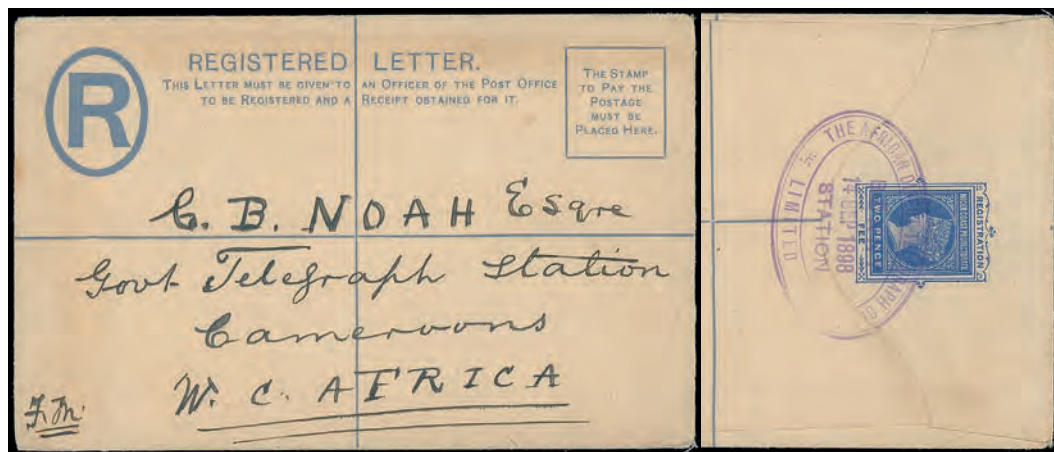 R
REGISTERED LETTER.
THIS LETTER MUST BE GIVEN TO AN OFFICER OF THE POST OFFICE
TO BE REGISTERED AND A RECEIPT OBTAINED FOR IT.
THE STAMP
TO PAY THE
POSTAGE
MUST BE
PLACED HERE.
C. B. NOAH Esqre
Govt Telegraph Station
Cameroons
W. C. AFRICA
F.M.
THE AFRICAN
LIMITED
1898
STATION
REGISTRATION
TWO PENCE
FEE